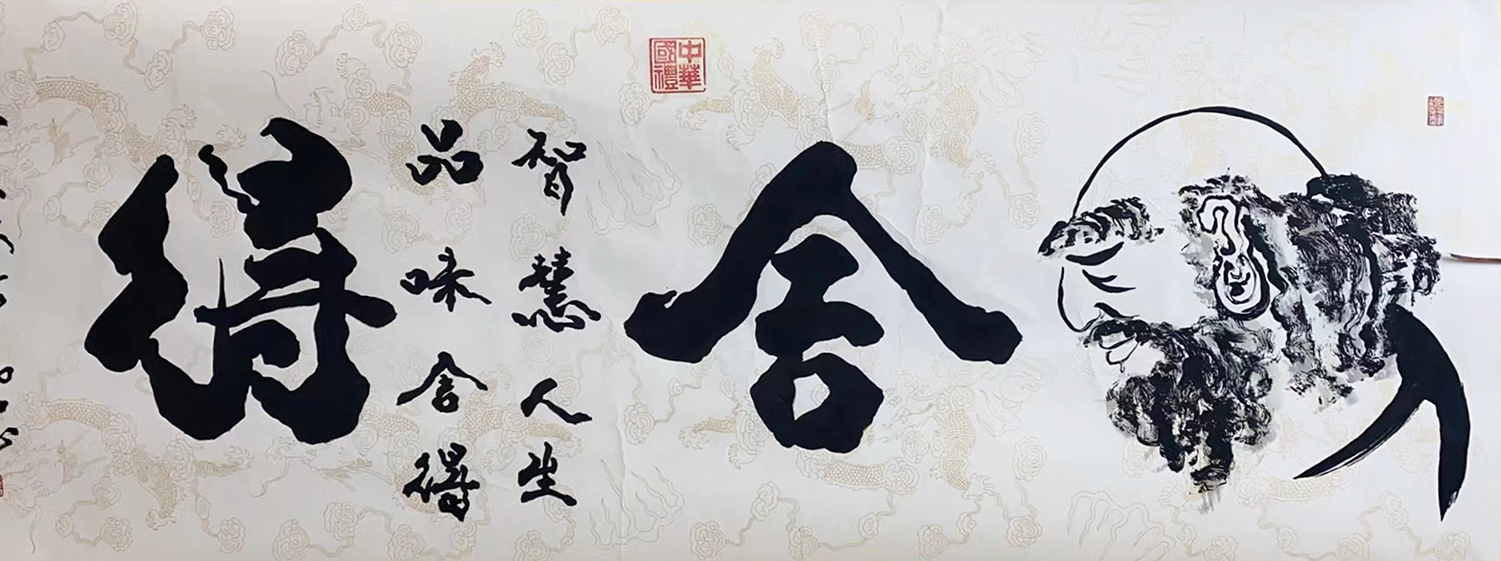 舍
中華
國禮
智慧人生
品味舍得
得